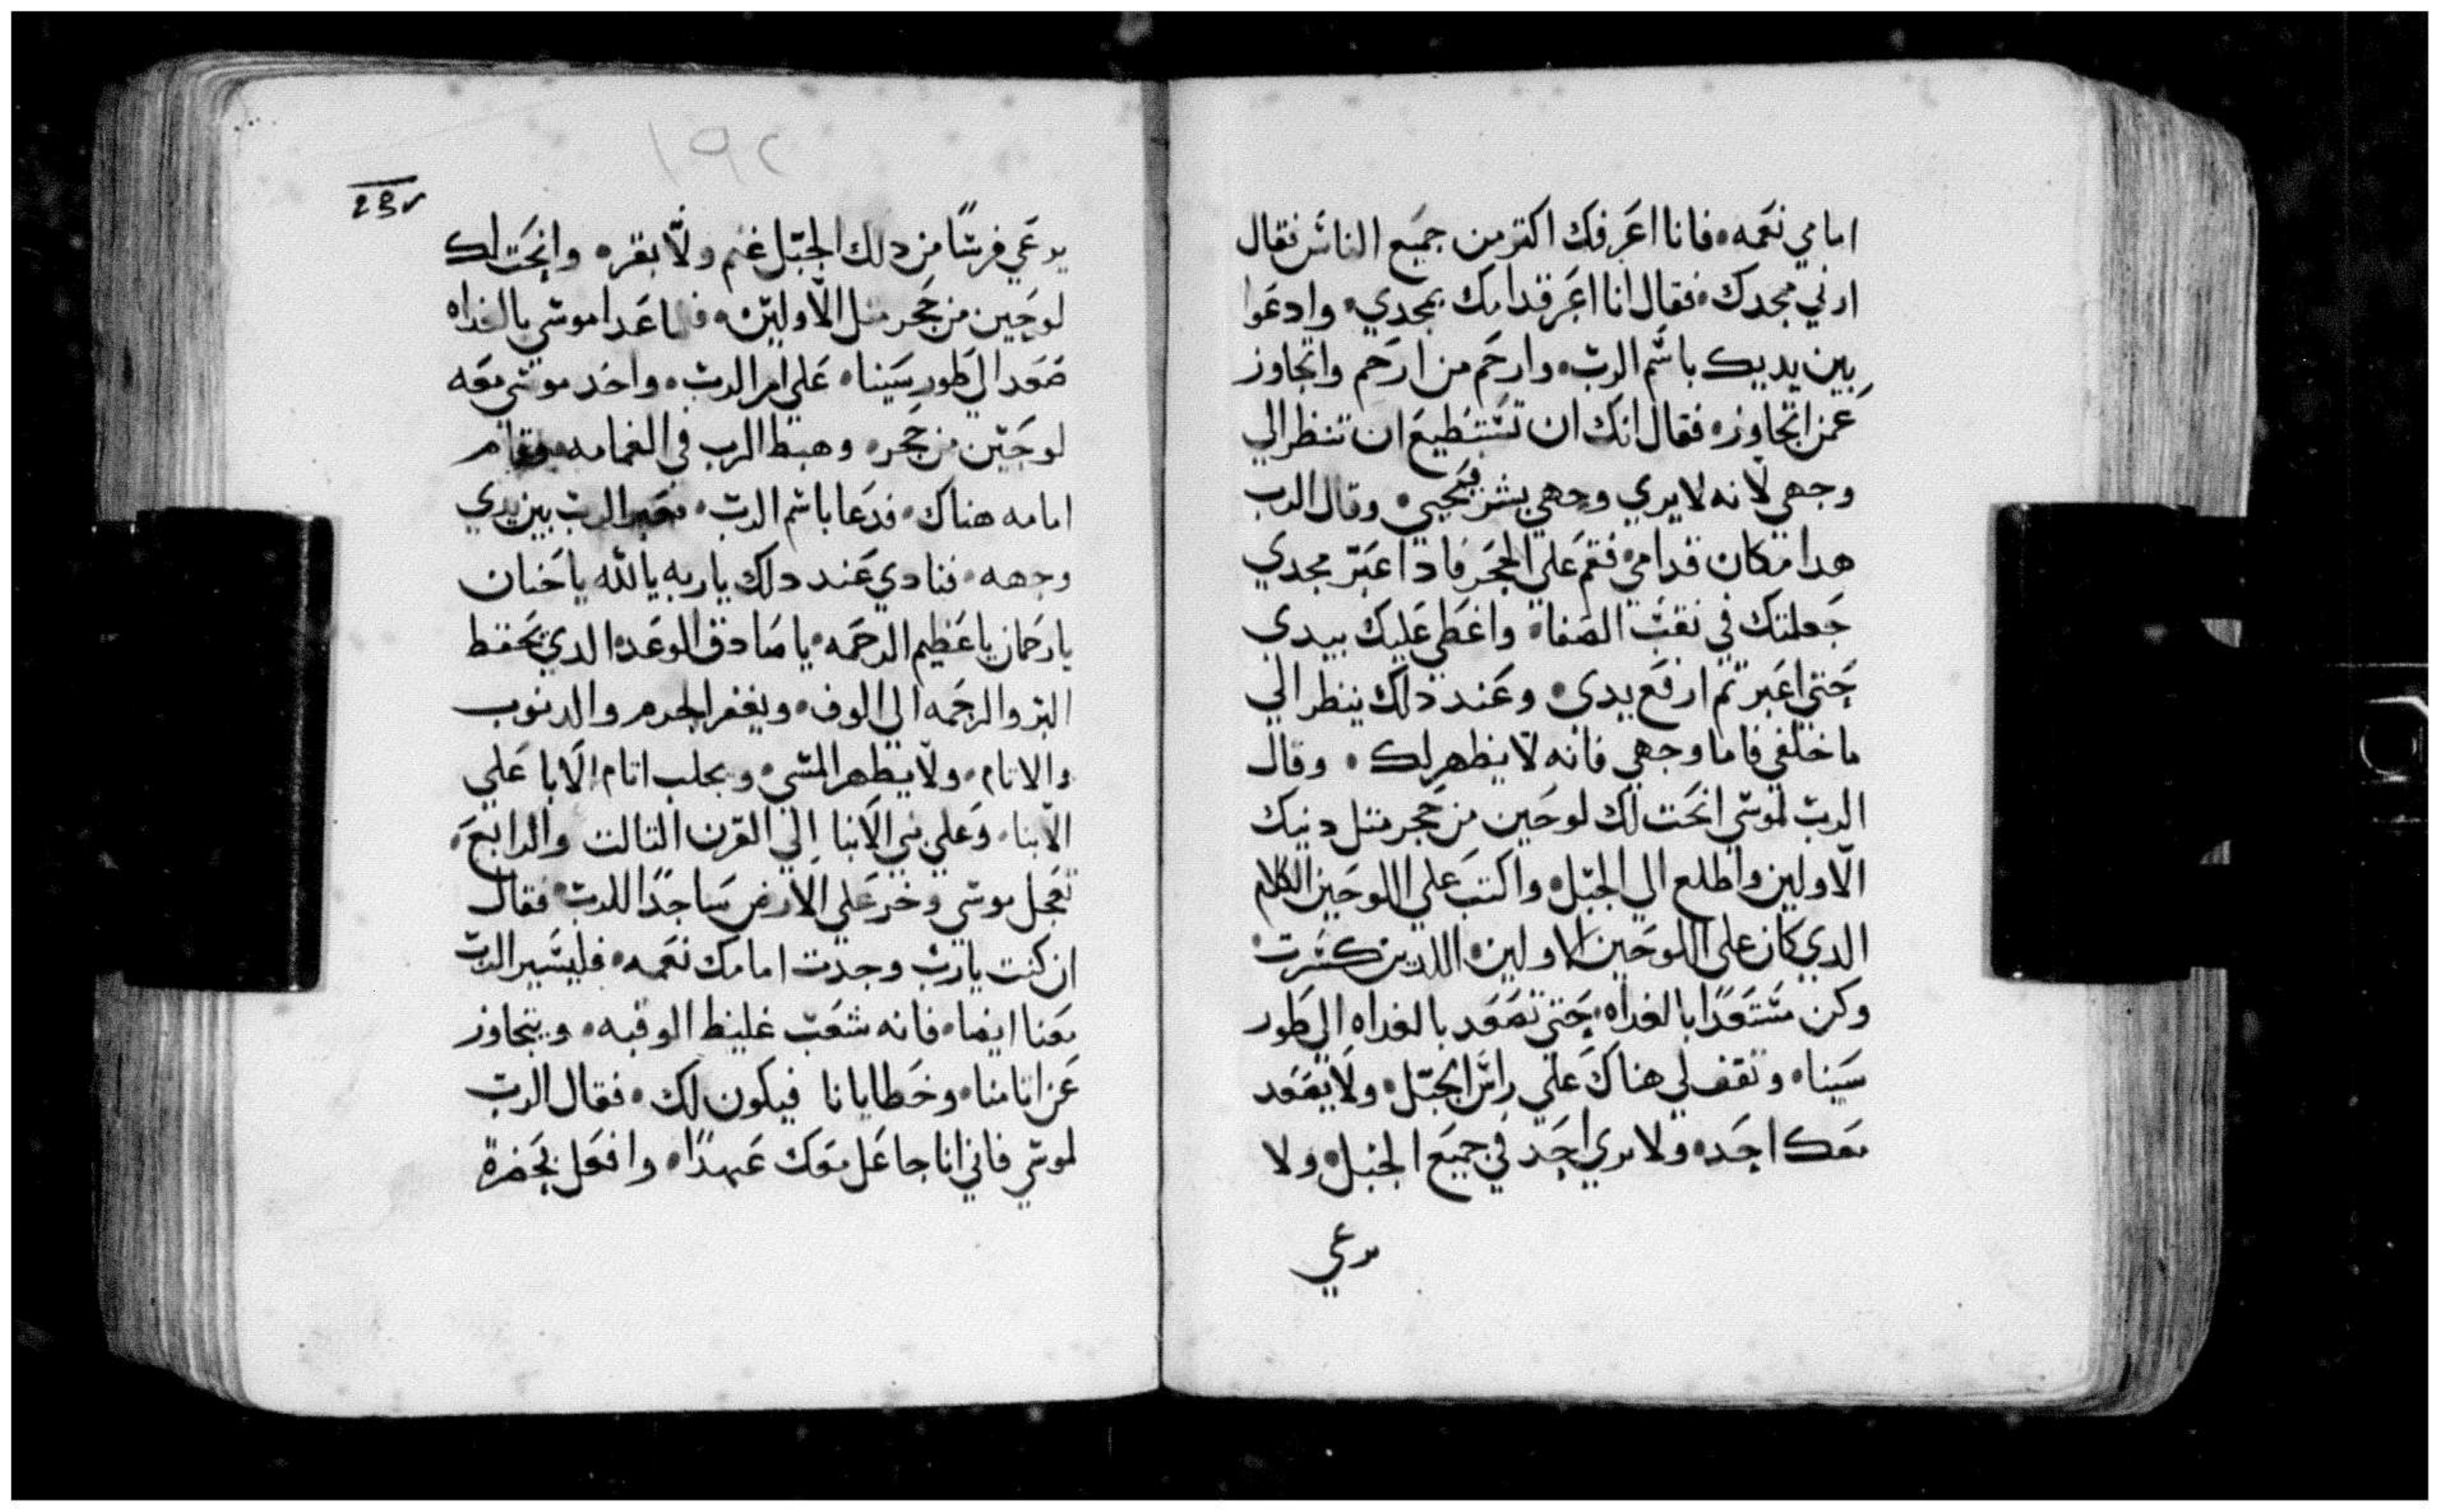 امامي نعمه فانا اعرفك اكتر من جميع الناس فقال
ارني مجدك فقال انا اعبر قدامك بمجدي وادعوا
بين يديك باسم الرب وارحم من ارحم واتجاوز
عمن اتجاوز فقال انك ان تستطيع ان تنظر الي
وجهي لانه لا يري وجهي بشر فيحيي وقال الرب
هدا مكان قدامي فقم علي الحجر فادا عبر مجدي
جعلتك في نقب الصفاه واغطي عليك بيدي
حتي اعبر تم ارفع يدي وعند دلك ينظر الي
ما خلفي فاما وجهي فانه لا يظهر لك وقال
الرب لموسي انحت لك لوحين من حجر متل دنيك
الاولين واطلع الي الجبل واكتب علي اللوحين الكلام
الدي كان علي اللوحين الاولين اللدين كسرت
وكن مستعدا بالغداه حتي تصعد بالغداه الي طور
سينا وتقف لي هناك علي راس الجبل ولا يصعد
معك احد ولا يري احد في جميع الجبل ولا
يرعي
١٩٢
يرعي قريبًا من دلك الجبل غنم ولا بقره وانحت لك
لوحين من حجر متل الاولين فلما غدا موسي بالغداه
صعد الي طور سينا علي امر الرب واخد موسي معه
لوحين من حجر وهبط الرب في الغمامه وقام
امامه هناك فدعا باسم الرب فعبر الرب بين يدي
وجهه فنادي عند دلك يا ربه يا الله يا حنان
يا رحمان يا عظيم الرحمه يا صادق الوعد الدي يحفظ
البر والرحمه الي الوف ويغفر الجرم والدنوب
والاتام ولا يطهر المسي ويجلب اتام الابا علي
الابنا وعلي بني الابنا الي القرن التالت والرابع
فعجل موسي وخر علي الارض ساجدًا للرب فقال
ان كنت يا رب وجدت امامك نعمه فليسير الرب
معنا ايضا فانه شعب غليظ الرقبه ويتجاوز
عن اتامنا وخطايانا فيكون لك فقال الرب
لموسي فاني انا جاعل معك عهدًا وافعل بحضرة